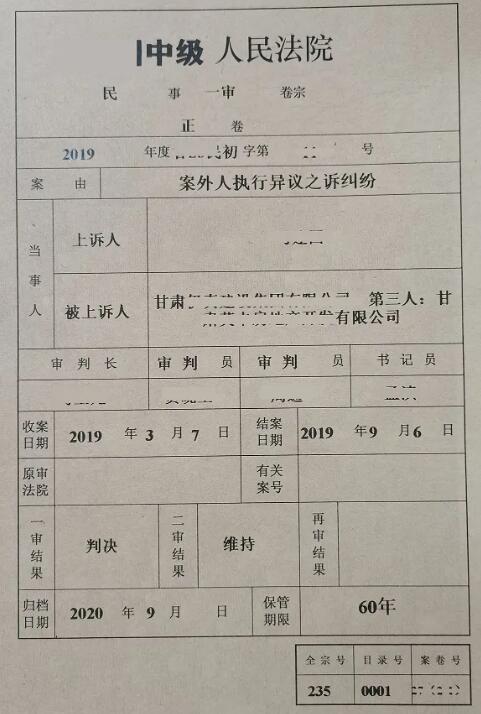 中级 人民法院
民 事 一审 卷宗
正 卷
2019 年度 民初 字第 号
案 由 案外人执行异议之诉纠纷
当事人 上诉人
被上诉人 甘肃 建设集团有限公司 第三人：甘
房地产开发有限公司
审 判 长 审 判 员 审 判 员 书 记 员
收案日期 2019 年 3 月 7 日 结案日期 2019 年 9 月 6 日
原审法院 有关案号
一审结果 判决 二审结果 维持 再审结果
归档日期 2020 年 9 月 日 保管期限 60年
全 宗 号 目 录 号 案 卷 号
235 0001